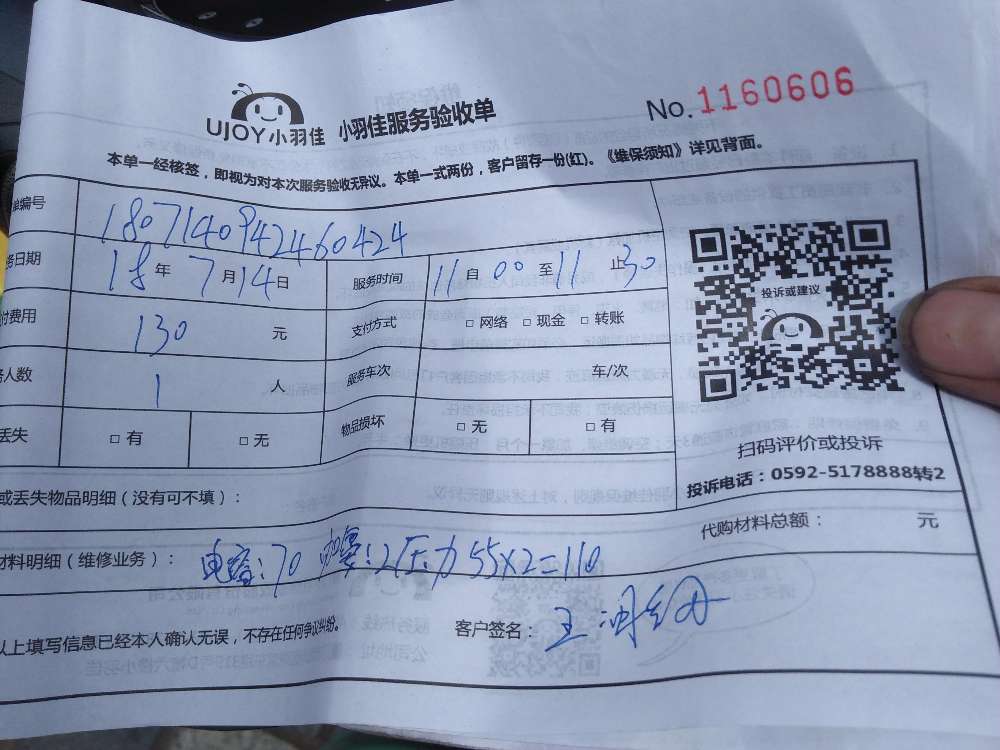 UJOY小羽佳 小羽佳服务验收单
No. 1160606
本单一经核签，即视为对本次服务验收无异议。本单一式两份，客户留存一份(红)。《维保须知》详见背面。
单编号 1807140942460424
务日期 18年 7月14日 服务时间 11自00至11止30
付费用 130 元 支付方式 □ 网络 □ 现金 □ 转账
人数 1 人 服务车次 车/次
丢失 □ 有 □ 无 物品损坏 □ 无 □ 有
投诉或建议
扫码评价或投诉
投诉电话：0592-5178888转2
或丢失物品明细（没有可不填）：
代购材料总额： 元
材料明细（维修业务）： 电容:70 加雾:2压力 55×2=110
以上填写信息已经本人确认无误，不存在任何争议纠纷。
客户签名： 王